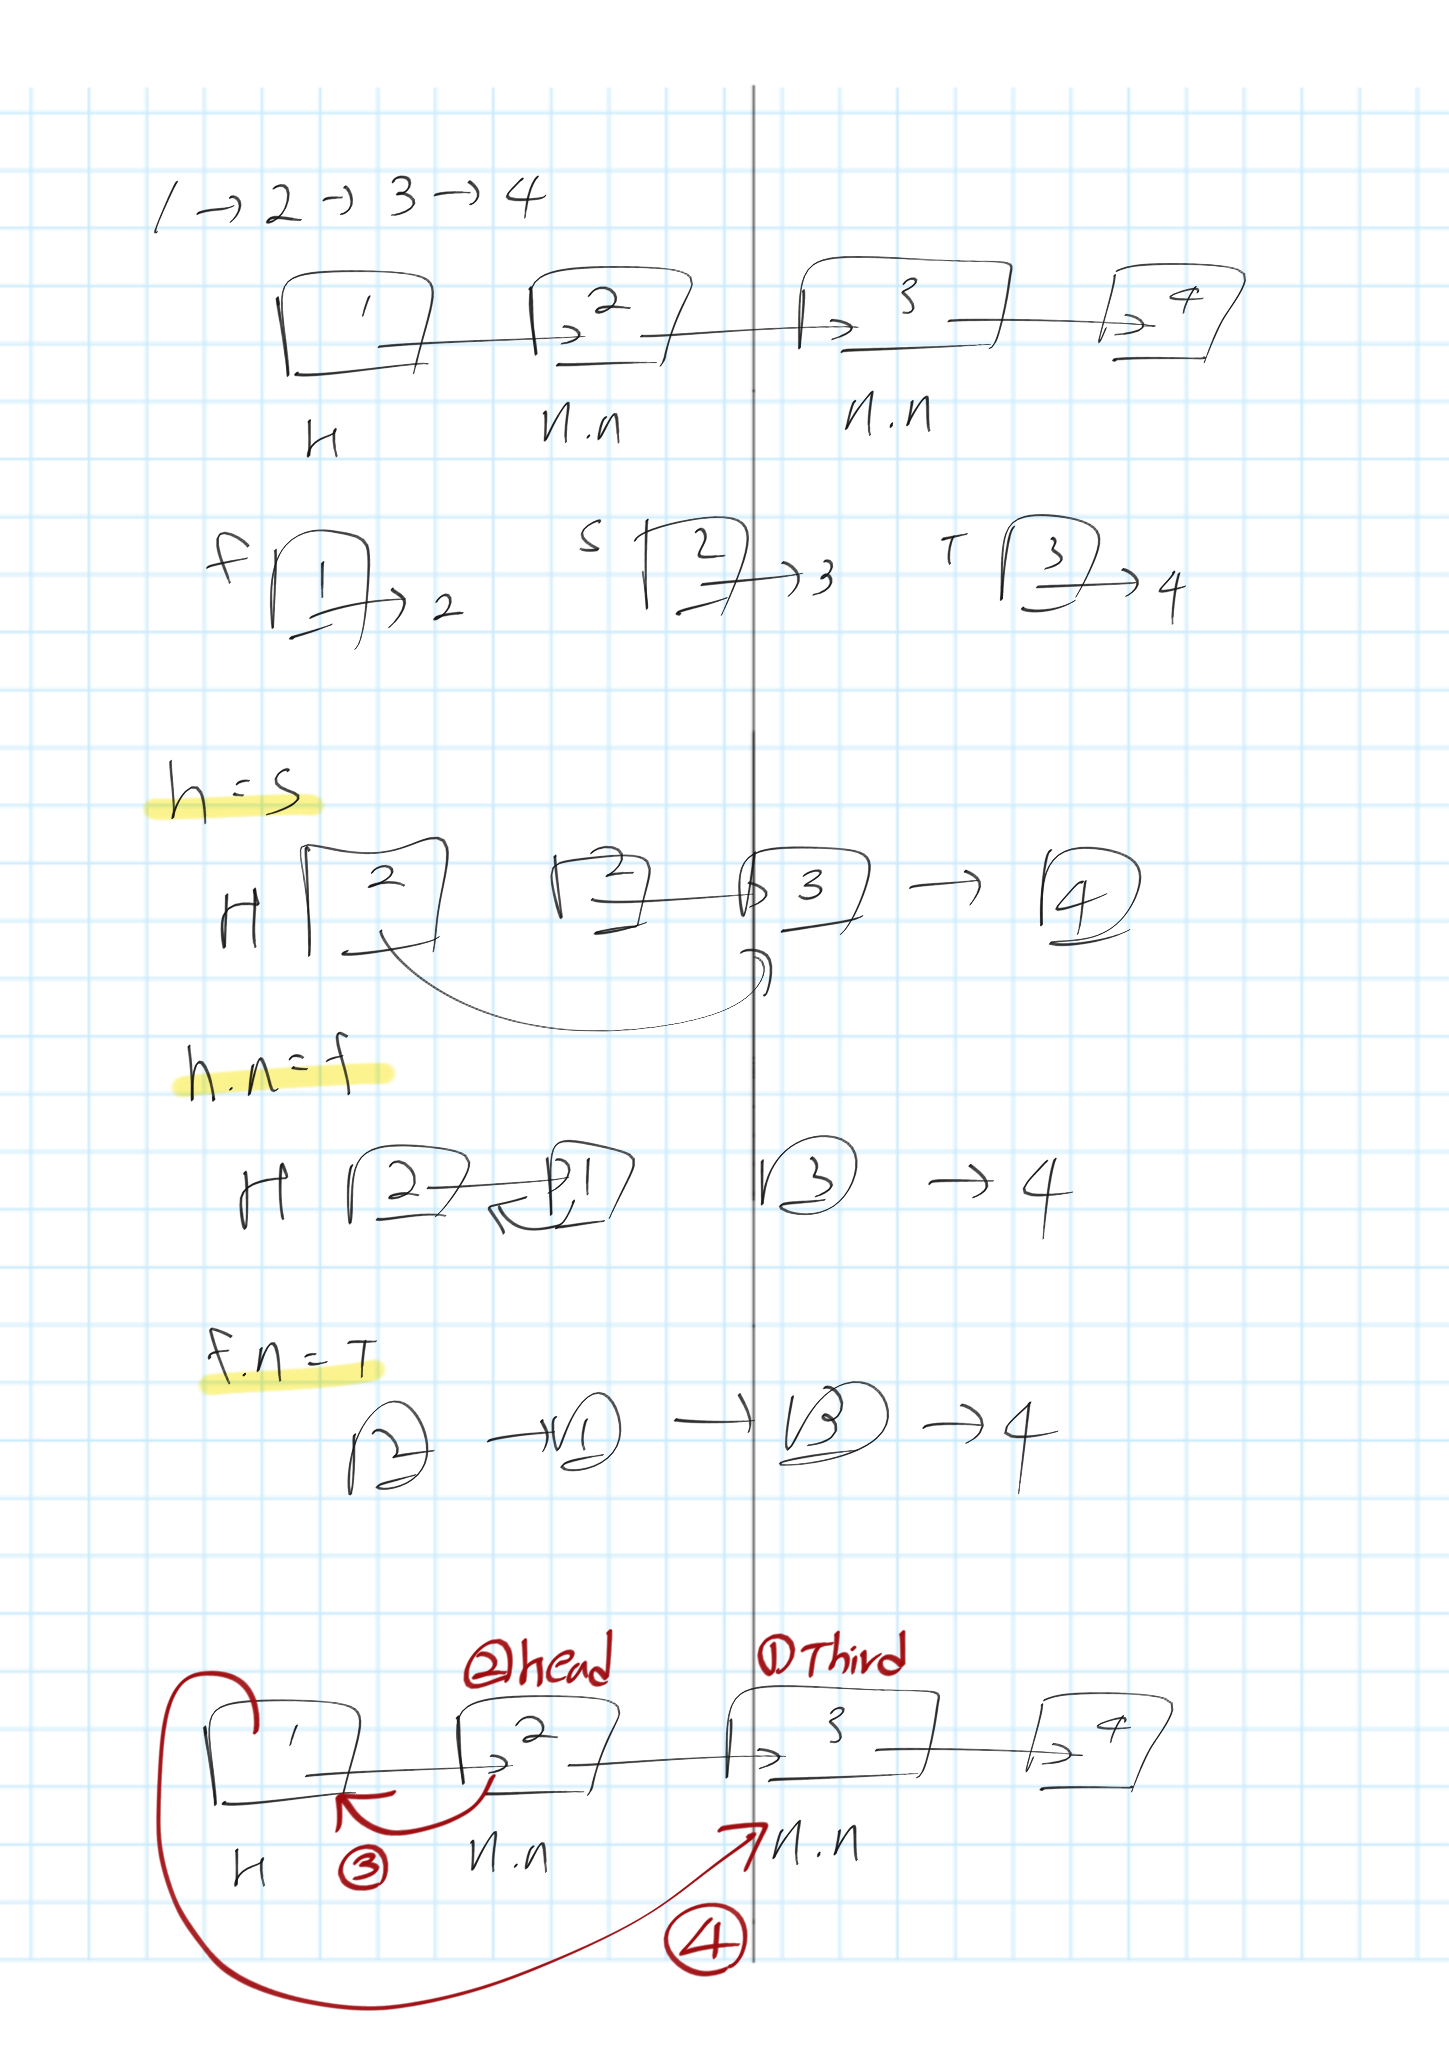 1 → 2 → 3 → 4
1 2 3 4
H n.n n.n
f 1 → 2 S 2 → 3 T 3 → 4
h = S
H 2 2 3 → 4
h.n = f
H 2 1 3 → 4
f.n = T
2 → 1 → 3 → 4
②head ①Third
1 2 3 4
H ③ n.n n.n
④